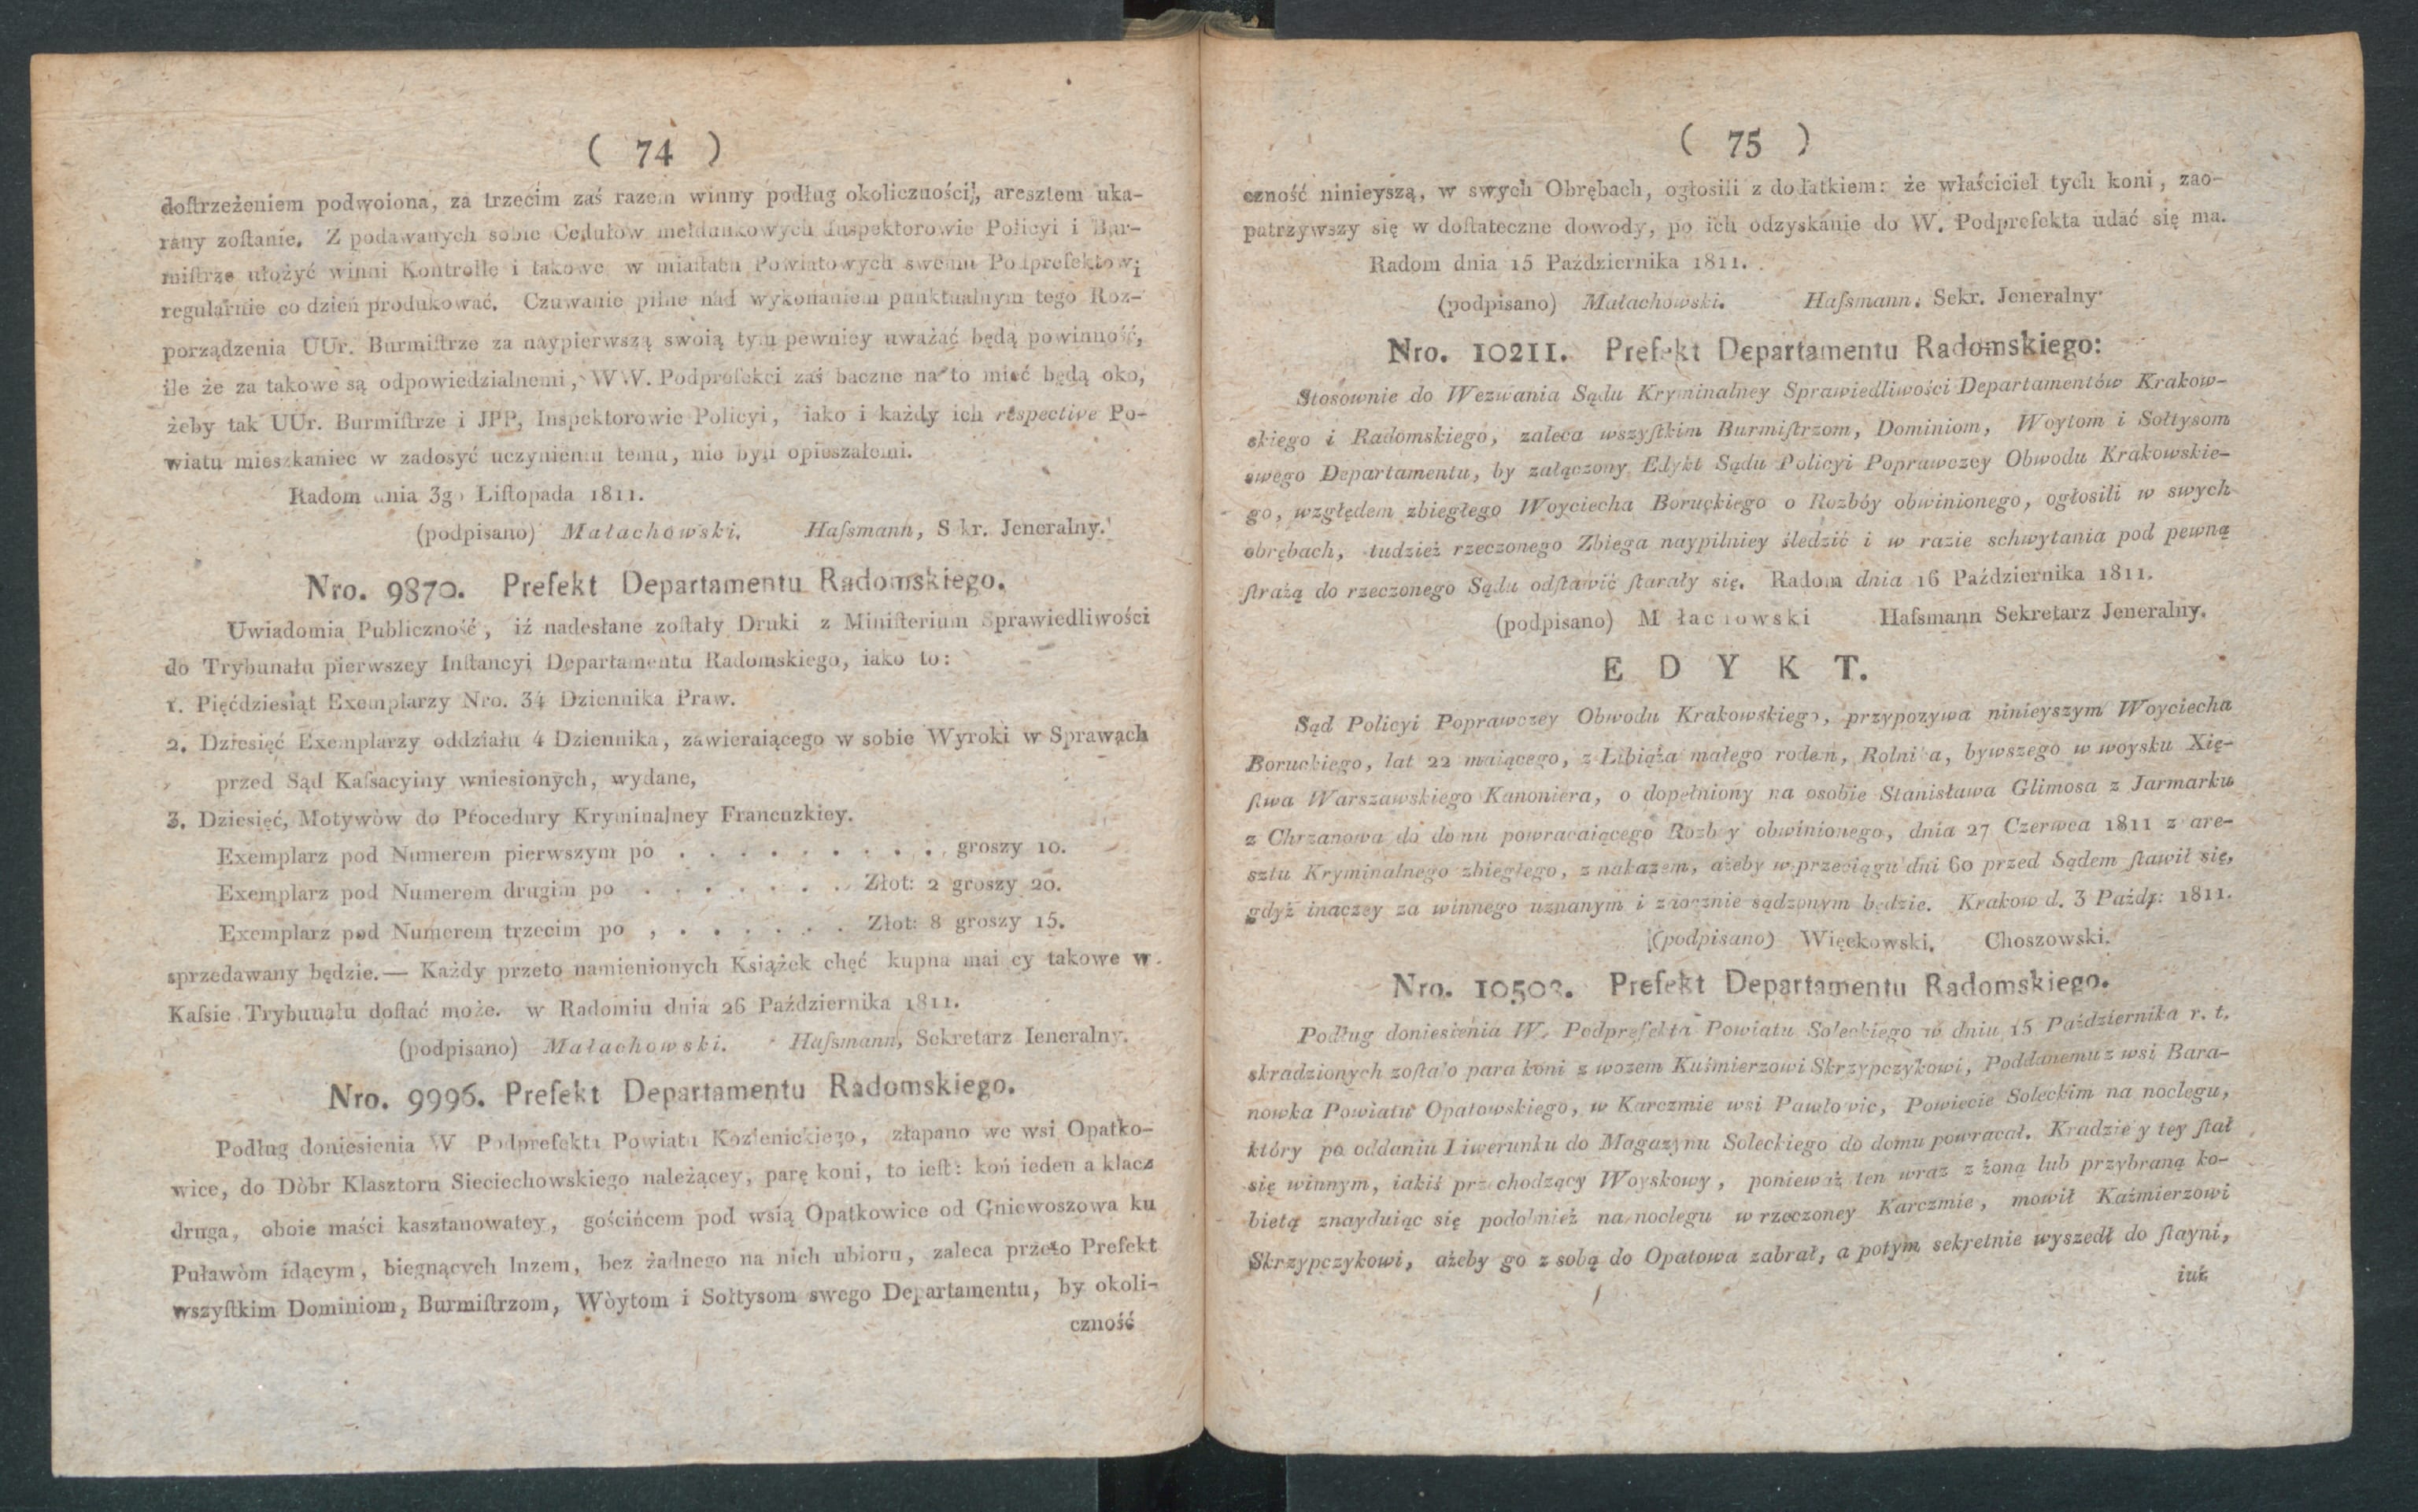 ( 74 )
dostrzeżeniem podwoiona, za trzecim zaś razem winny podług okoliczności, aresztem uka-
rany zostanie. Z podawanych sobie Cedułow meldunkowych Inspektorowie Policyi i Bur-
mistrze ułożyć winni Kontrolle i takowe w miastach Powiatowych swemu Podprefektowi
regularnie co dzień produkować. Czuwanie pilne nad wykonaniem punktualnym tego Roz-
porządzenia UUr. Burmistrze za naypierwszą swoią tym pewniey uważać będą powinność,
ile że za takowe są odpowiedzialnemi, WW. Podprefekci zaś baczne na to mieć będą oko,
żeby tak UUr. Burmistrze i JPP, Inspektorowie Policyi, iako i każdy ich respective Po-
wiatu mieszkaniec w zadosyć uczynieniu temu, nie byli opieszałemi.
Radom dnia 3go Listopada 1811.
(podpisano) Małachowski. Hassmann, Sekr. Jeneralny.
Nro. 9870. Prefekt Departamentu Radomskiego.
Uwiadomia Publiczność, iż nadesłane zostały Druki z Ministerium Sprawiedliwości
do Trybunału pierwszey Instancyi Departamentu Radomskiego, iako to:
1. Pięćdziesiąt Exemplarzy Nro. 34 Dziennika Praw.
2. Dziesięć Exemplarzy oddziału 4 Dziennika, zawieraiącego w sobie Wyroki w Sprawach
przed Sąd Kassacyiny wniesionych, wydane,
3. Dziesięć, Motywòw do Procedury Kryminalney Francuzkiey.
Exemplarz pod Numerem pierwszym po . . . . . . . . . . groszy 10.
Exemplarz pod Numerem drugim po . . . . . . . . Złot: 2 groszy 20.
Exemplarz pod Numerem trzecim po , . . . . . . Złot: 8 groszy 15.
sprzedawany będzie.— Każdy przeto namienionych Książek chęć kupna mai cy takowe w
Kassie Trybunału dostać może. w Radomiu dnia 26 Października 1811.
(podpisano) Małachowski. Hassmann, Sekretarz Ieneralny.
Nro. 9996. Prefekt Departamentu Radomskiego.
Podług doniesienia W Podprefekta Powiatu Kozienickiego, złapano we wsi Opatko-
wice, do Dòbr Klasztoru Sieciechowskiego należącey, parę koni, to iest: koń ieden a klacz
druga, oboie maści kasztanowatey, gościńcem pod wsią Opatkowice od Gniewoszowa ku
Puławòm idącym, biegnących luzem, bez żadnego na nich ubioru, zaleca przeto Prefekt
wszystkim Dominiom, Burmistrzom, Wòytom i Sołtysom swego Departamentu, by okoli-
czność
( 75 )
czność ninieyszą, w swych Obrębach, ogłosili z dodatkiem: że właściciel tych koni, zao-
patrzywszy się w dostateczne dowody, po ich odzyskanie do W. Podprefekta udać się ma.
Radom dnia 15 Października 1811.
(podpisano) Małachowski. Hassmann. Sekr. Jeneralny
Nro. 10211. Prefekt Departamentu Radomskiego:
Stosownie do Wezwania Sądu Kryminalney Sprawiedliwości Departamentów Krakow-
skiego i Radomskiego, zaleca wszystkim Burmistrzom, Dominiom, Woytom i Sołtysom
swego Departamentu, by załączony Edykt Sądu Policyi Poprawczey Obwodu Krakowskie-
go, względem zbiegłego Woyciecha Boruckiego o Rozbóy obwinionego, ogłosili w swych
obrębach, tudzież rzeczonego Zbiega naypilniey śledzić i w razie schwytania pod pewną
strażą do rzeczonego Sądu odstawić starały się. Radom dnia 16 Października 1811.
(podpisano) M łachowski Hassmann Sekretarz Jeneralny.
E D Y K T.
Sąd Policyi Poprawczey Obwodu Krakowskiego, przypozywa ninieyszym Woyciecha
Boruckiego, lat 22 maiącego, z Libiąża małego rodem, Rolnika, bywszego w woysku Xię-
stwa Warszawskiego Kanoniera, o dopełniony na osobie Stanisława Glimosa z Jarmarku
z Chrzanowa do domu powracaiącego Rozbóy obwinionego, dnia 27 Czerwca 1811 z are-
sztu Kryminalnego zbiegłego, z nakazem, ażeby w przeciągu dni 60 przed Sądem stawił się,
gdyż inaczey za winnego uznanym i zaocznie sądzonym będzie. Krakow d. 3 Paźdz: 1811.
(podpisano) Więckowski. Choszowski.
Nro. 10503. Prefekt Departamentu Radomskiego.
Podług doniesienia W. Podprefekta Powiatu Soleckiego w dniu 15 Października r. t.
skradzionych zostało para koni z wozem Kuśmierzowi Skrzypczykowi, Poddanemu z wsi Bara-
nowka Powiatu Opatowskiego, w Karczmie wsi Pawłowic, Powiecie Soleckim na noclegu,
który po oddaniu Liwerunku do Magazynu Soleckiego do domu powracał. Kradzieży tey stał
się winnym, iakiś przechodzący Woyskowy, ponieważ ten wraz z żoną lub przybraną ko-
bietą znayduiąc się podobnież na noclegu w rzeczoney Karczmie, mowił Kaźmierzowi
Skrzypczykowi, ażeby go z sobą do Opatowa zabrał, a potym sekretnie wyszedł do stayni,
iuż